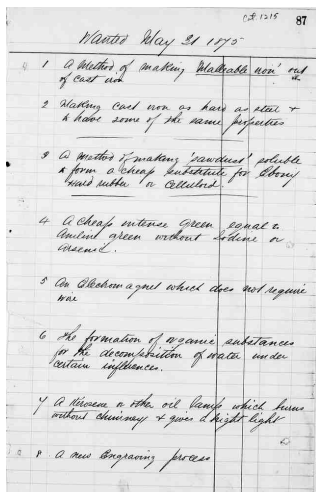 Cat 1215
87
Wanted May 31 1875
1 A Method of making Malleable iron out
of cast iron
2 Making cast iron as hard as steel &
to have some of the same properties
3 A Method of making 'sawdust' soluble
& form a cheap substitute for Ebony
Hard rubber or Celluloid
4 A cheap intense green equal to
green without Iodine or
Arsenic.
5 An Electromagnet which does not require
wire
6 the formation of organic substances
for the decomposition of water under
certain influences.
7 A Kerosene or other oil lamp which burns
without chimney & gives a bright light
8 A new Engraving process